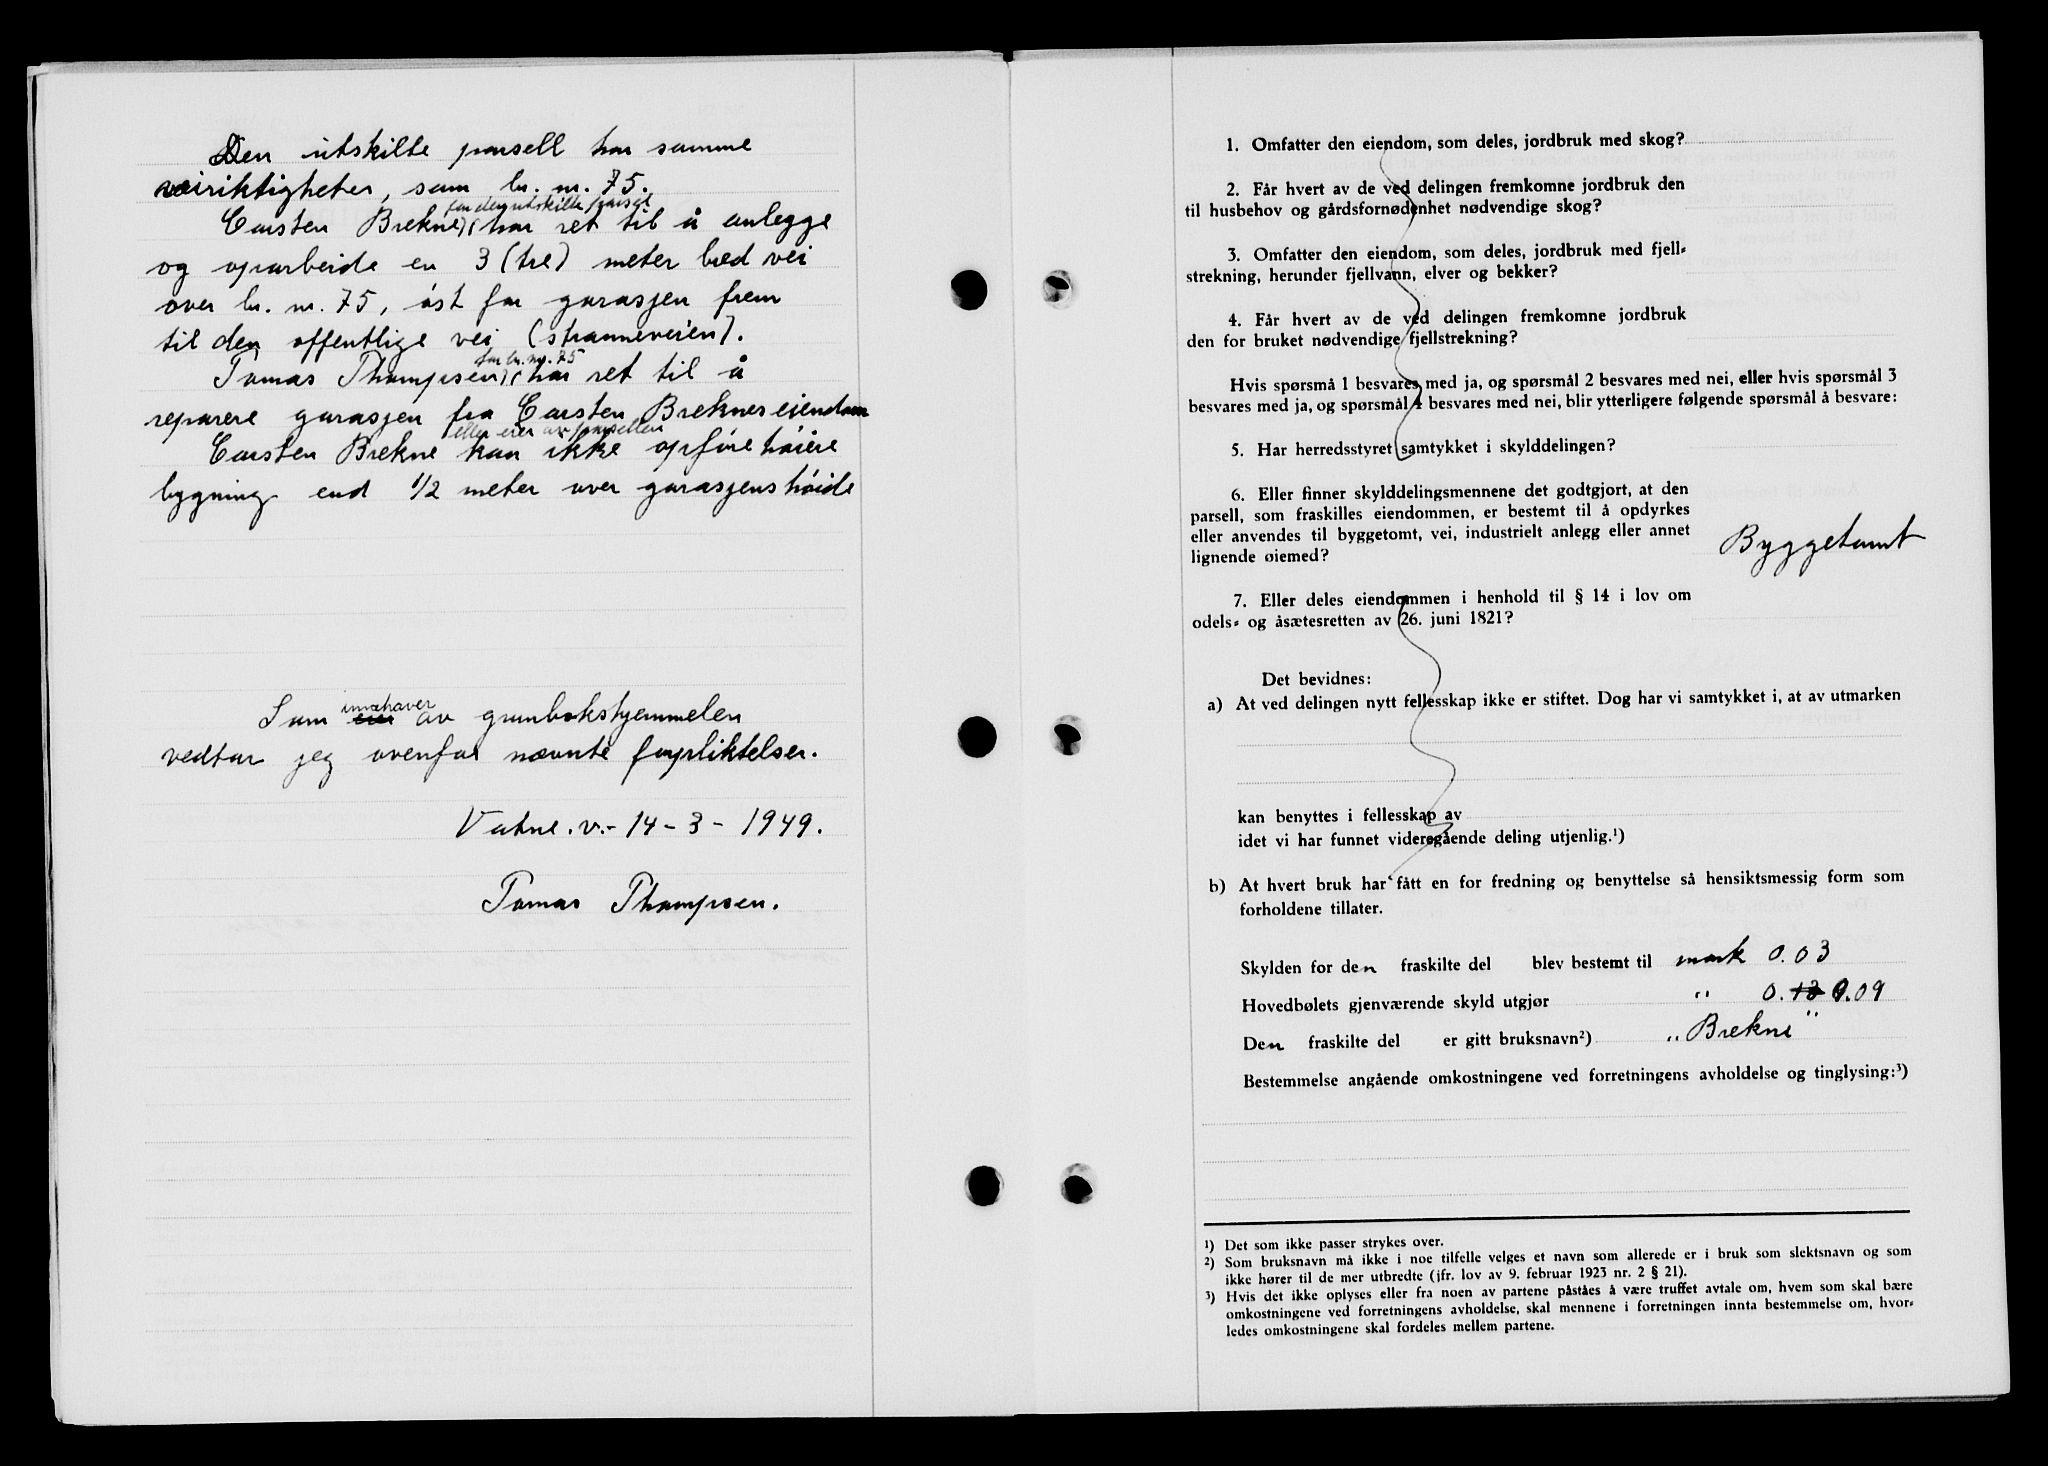 Den utskilte parsell har samme
veiriktigheter, som br. nr. 75.
for den utskilte parsel
Carsten Brekne har ret til å anlegge
og oparbeide en 3 (tre) meter bred vei
over br. nr. 75, øst for garasjen frem
til den offentlige vei (stranneveien).
for br. nr. 75
Tomas Thompsen har ret til å
reparere garasjen fra Carsten Breknes eiendom
eller eier av parsellen
Carsten Brekne kan ikke opføre høiere
bygning end 1/2 meter over garasjens høide
innehaver
Som eier av grunbokshjemmelen
vedtar jeg ovenfor nævnte forpliktelser.
Vatne. v.- 14 - 3 - 1949.
Tomas Thompsen.
1. Omfatter den eiendom, som deles, jordbruk med skog?
2. Får hvert av de ved delingen fremkomne jordbruk den
til husbehov og gårdsfornødenhet nødvendige skog?
3. Omfatter den eiendom, som deles, jordbruk med fjell-
strekning, herunder fjellvann, elver og bekker?
4. Får hvert av de ved delingen fremkomne jordbruk
den for bruket nødvendige fjellstrekning?
Hvis spørsmå 1 besvares med ja, og spørsmål 2 besvares med nei, eller hvis spørsmål 3
besvares med ja, og spørsmål 4 besvares med nei, blir ytterligere følgende spørsmål å besvare:
5. Har herredsstyret samtykket i skylddelingen?
6. Eller finner skylddelingsmennene det godtgjort, at den
parsell, som fraskilles eiendommen, er bestemt til å opdyrkes
eller anvendes til byggetomt, vei, industrielt anlegg eller annet
lignende øiemed?
Byggetomt
7. Eller deles eiendommen i henhold til § 14 i lov om
odels- og åsætesretten av 26. juni 1821?
Det bevidnes:
a) At ved delingen nytt fellesskap ikke er stiftet. Dog har vi samtykket i, at av utmarken
kan benyttes i fellesskap av
idet vi har funnet videregående deling utjenlig.¹)
b) At hvert bruk har fått en for fredning og benyttelse så hensiktsmessig form som
forholdene tillater.
Skylden for den fraskilte del blev bestemt til mark 0.03
Hovedbølets gjenværende skyld utgjør " 0.12 0.09
Den fraskilte del er gitt bruksnavn²) „Brekne"
Bestemmelse angående omkostningene ved forretningens avholdelse og tinglysing:³)
¹) Det som ikke passer strykes over.
²) Som bruksnavn må ikke i noe tilfelle velges et navn som allerede er i bruk som slektsnavn og som
ikke hører til de mer utbredte (jfr. lov av 9. februar 1923 nr. 2 § 21).
³) Hvis det ikke oplyses eller fra noen av partene påståes å være truffet avtale om, hvem som skal bære
omkostningene ved forretningens avholdelse, skal mennene i forretningen innta bestemmelse om, hvor-
ledes omkostningene skal fordeles mellem partene.